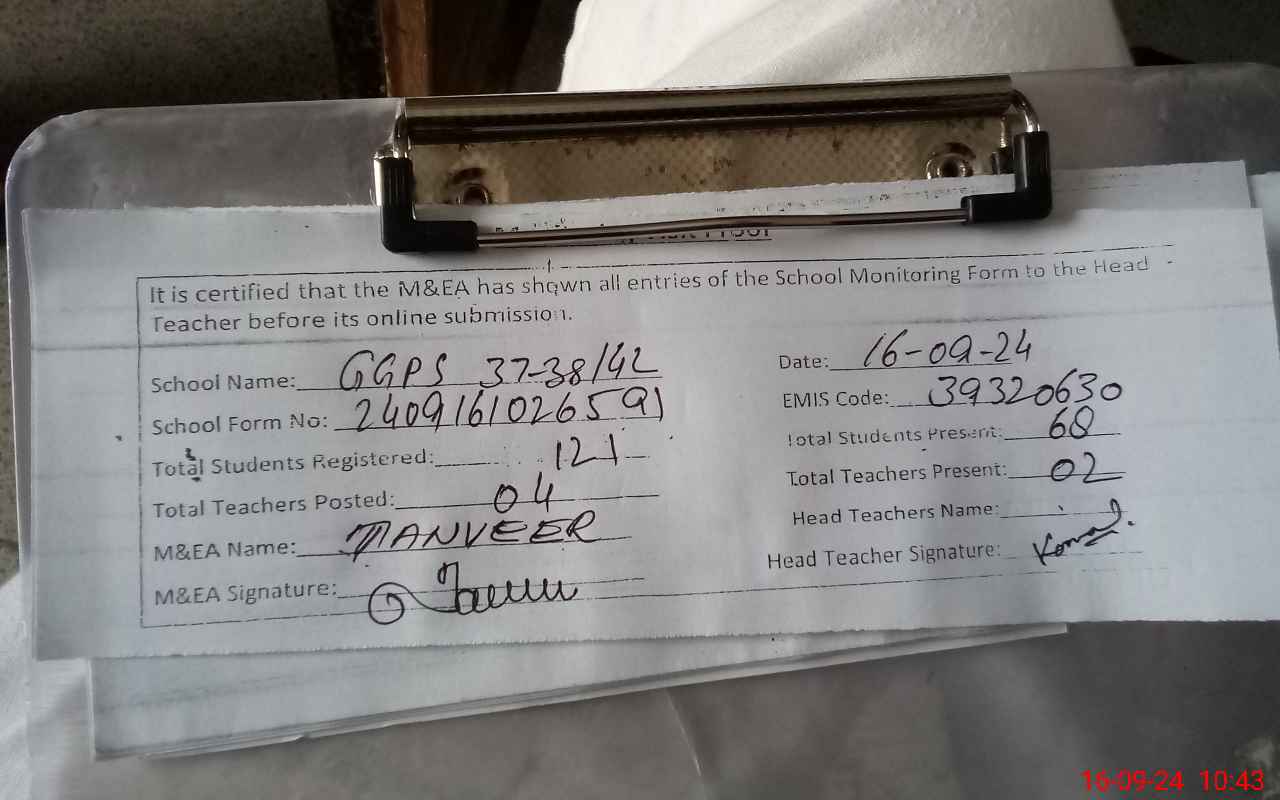 It is certified that the M&EA has shown all entries of the School Monitoring Form to the Head
Teacher before its online submission.
School Name: GGPS 37-38/42 Date: 16-09-24
School Form No: 240916102659 EMIS Code: 39320630
Total Students Registered: 121 Total Students Present: 68
Total Teachers Posted: 04 Total Teachers Present: 02
M&EA Name: TANVEER Head Teachers Name:
M&EA Signature: Head Teacher Signature: Komal
16-09-24 10:43